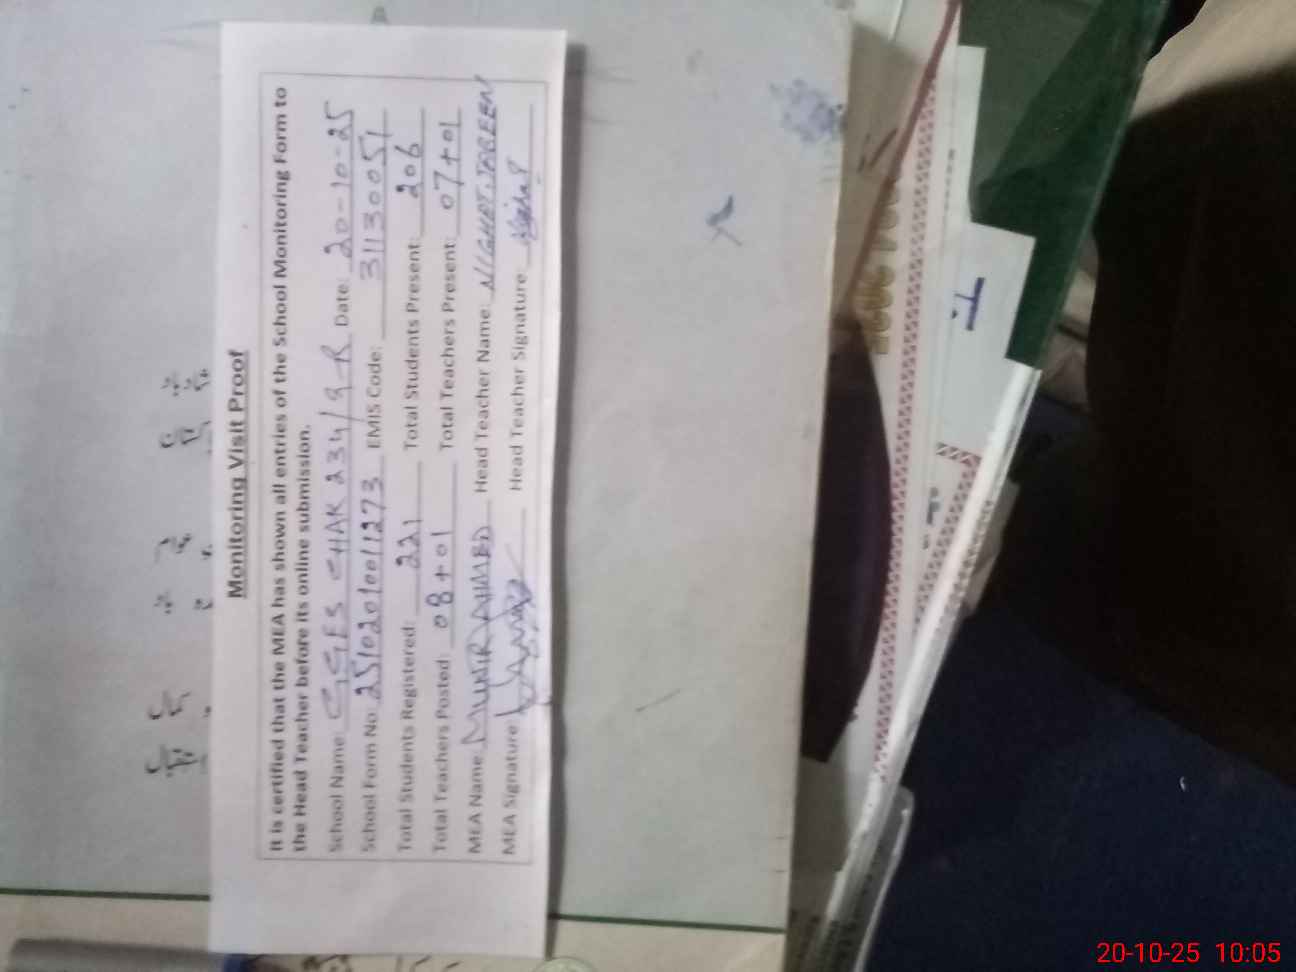 Monitoring Visit Proof
It is certified that the MEA has shown all entries of the School Monitoring Form to
the Head Teacher before its online submission.
School Name: GGES CHAK 234/9-R Date: 20-10-25
School Form No: 2510201001273 EMIS Code: 31130051
Total Students Registered: 221 Total Students Present: 206
Total Teachers Posted: 08+01 Total Teachers Present: 07+01
MEA Name: MUNIR AHMED Head Teacher Name: NIGHAT JABEEN
MEA Signature: Head Teacher Signature:
20-10-25 10:05